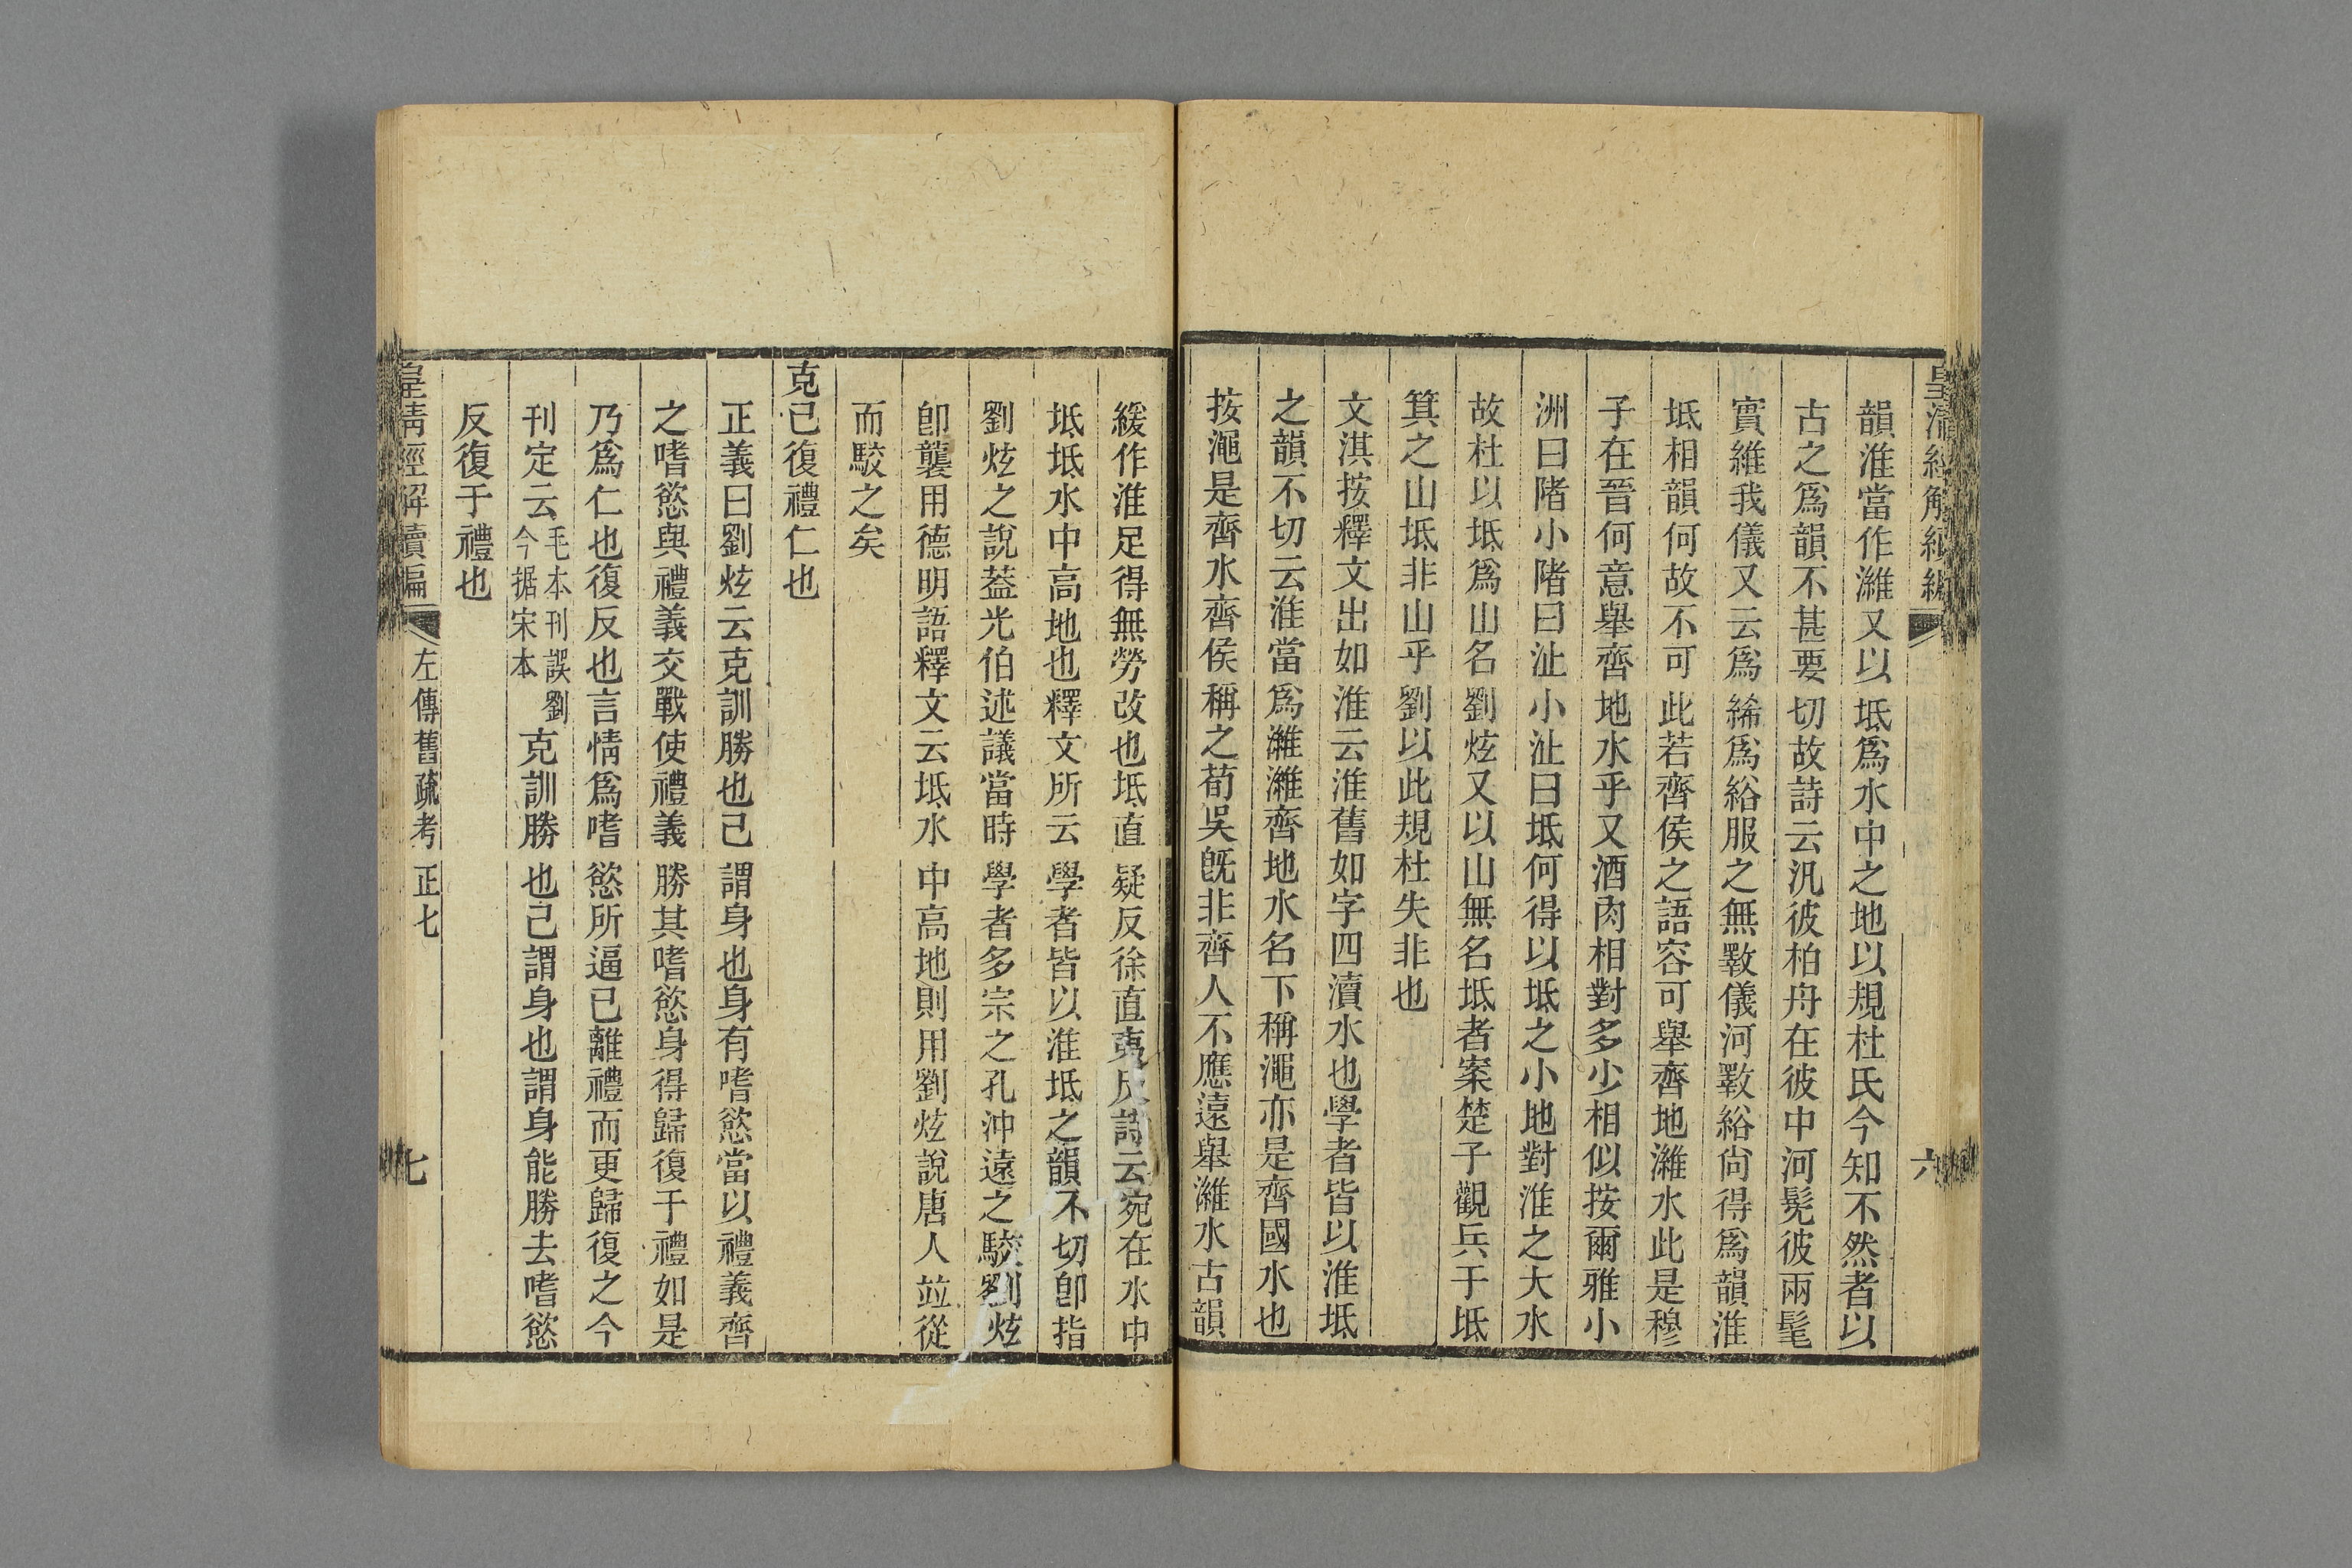 皇清經解續編
六
韻淮當作濰又以坻爲水中之地以規杜氏今知不然者以
古之爲韻不甚要切故詩云汎彼柏舟在彼中河髧彼兩髦
實維我儀又云爲絺爲綌服之無斁儀河斁綌尙得爲韻淮
坻相韻何故不可此若齊侯之語容可舉齊地濰水此是穆
子在晉何意舉齊地水乎又酒肉相對多少相似按爾雅小
洲曰陼小陼曰沚小沚曰坻何得以坻之小地對淮之大水
故杜以坻爲山名劉炫又以山無名坻者案楚子觀兵于坻
箕之山坻非山乎劉以此規杜失非也
文淇按釋文出如淮云淮舊如字四瀆水也學者皆以淮坻
之韻不切云淮當爲濰濰齊地水名下稱澠亦是齊國水也
按澠是齊水齊侯稱之荀吳旣非齊人不應遠舉濰水古韻
緩作淮足得無勞改也坻直疑反徐直夷反詩云宛在水中
坻坻水中高地也釋文所云學者皆以淮坻之韻不切卽指
劉炫之說葢光伯述議當時學者多宗之孔沖遠之駮劉炫
卽襲用德明語釋文云坻水中高地則用劉炫說唐人竝從
而駮之矣
克己復禮仁也
正義曰劉炫云克訓勝也己謂身也身有嗜慾當以禮義齊
之嗜慾與禮義交戰使禮義勝其嗜慾身得歸復于禮如是
乃爲仁也復反也言情爲嗜慾所逼已離禮而更歸復之今
刊定云毛本刊誤劉今据宋本克訓勝也己謂身也謂身能勝去嗜慾
反復于禮也
皇清經解續編
左傳舊疏考正七
七